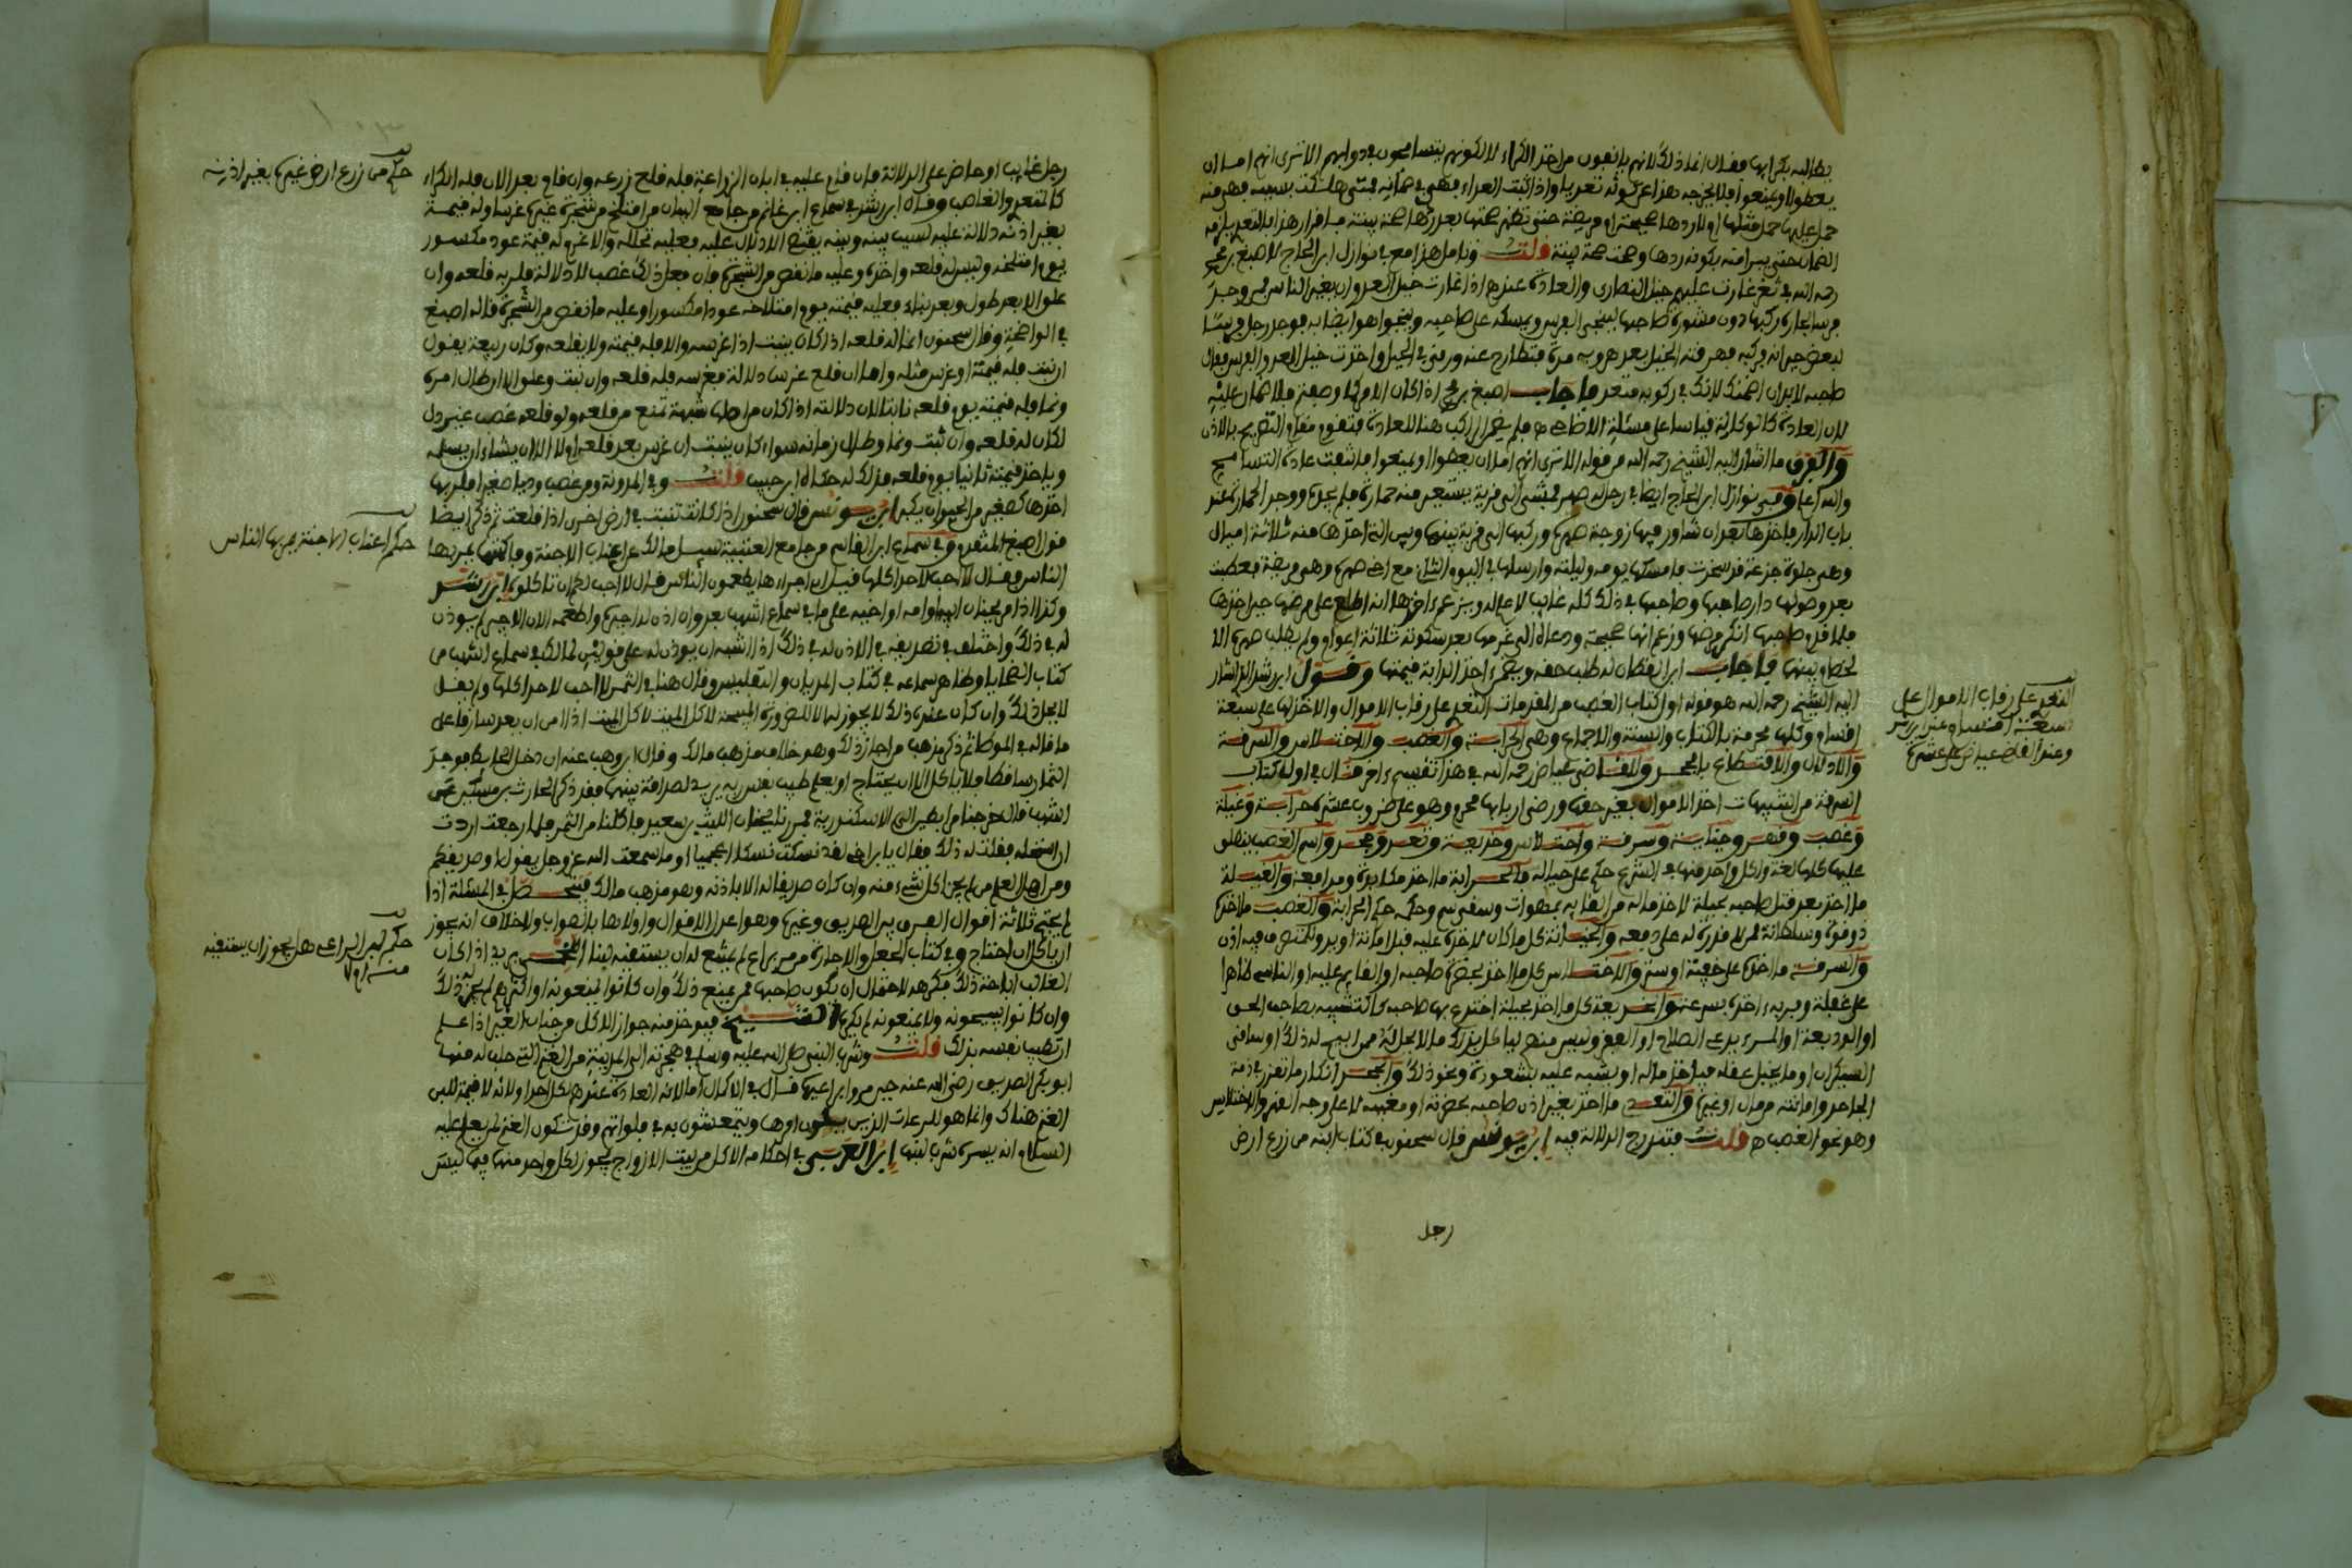 يطالبه بكرائها فقال انما ذلك لانهم يانفون من اخذ الكراء لا لكونهم يتسامحون في دوابهم الا ترى انهم اما ان
يعطوا او يمنعوا
حمل عليها حمل مثلها او لا ردها صحيحة او مريضة حتى تظهر صحتها بعد ردها صحة بينة
الضمان حتى يبرا منه بكونه ردها وصحت صحة بينة قلت وتامل هذا مع ما في نوازل ابن الحاج لاصبغ بن محمد
رحمه الله في ثغر غارت عليهم خيل النصارى والعادة عندهم اذا غارت خيل العدو ان يغير الناس فوجد
فرسا لجاره ركبها دون مشورة صاحبها لينجي الفرس ويمسكه على صاحبه وينجوا هو ايضا به فوجد رجل فرسا
لبعض جيرانه فركبه فهرفته الخيل بعد هروبه مرة فتطارح عنه ورمى في الجبل واخذت خيل العدو الفرس فقال
صاحبه لا بد ان اضمنك لانك في ركوبه متعد فاجاب اصبغ بن محمد اذا كان الامر كما وصفتم فلا ضمان عليه
لان العادة كالوكالة قياسا على مسئلة الاضاحي فلم يضمن اذ ركب هنا للعادة فتقوم مقام التصريح بالاذن
والفرق ما اشار اليه الشيخ رحمه الله من قوله الا ترى انهم اما ان يعطوا او يمنعوا فانتفت عادة التسامح
والله اعلم وفي نوازل ابن الحاج ايضا في رجل له صهر فمشى الى قرية يستعير منه حمارة فلم يجده ووجد الحمارة عند
باب الدار فاخذها بعد ان شاور فيها زوجة صهره وركبها الى قرية بينها وبين التي اخذها منه ثلاثة اميال
وهي حلوة جذعة قد سخرت فامسكها يومه وليلته وارسلها في اليوم الثاني مع اخي صهره وهي مريضة فعطبت
بعد وصولها دار صاحبها وصاحبها في ذلك كله غائب لا علم له ويزعم اخذها انه اطلع على مرضها حين اخذها
فلما قدم صاحبها انكر مرضها وزعم انها صحيحة ودعاه الى غرمها بعد سكوته ثلاثة اعوام ولم يطلب صهره الا
لخصام بينهما فاجاب ابن القطان له طلب حقه ويضمن اخذ الدابة قيمتها وقول ابن رشد الذي اشار
اليه الشيخ رحمه الله هو قوله اول كتاب الغصب من المقدمات التعدي على رقاب الاموال والاخذ لها على سبعة
اقسام وكلها محرمة بالكتاب والسنة والاجماع وهي الحرابة والغصب والاختلاس والسرقة
والادلال والاقتطاع بالحجر وللقاضي عياض رحمه الله في هذا تقسيم اخر قال في اول كتاب
السرقة من التنبيهات اخذ الاموال بغير حقها ورضى اربابها محرم وهو على ضروب عشرة حرابة وغيلة
وغصب وقهر وخيانة وسرقة واختلاس وخديعة وتعد وجحد واسم الغصب ينطلق
عليها كلها لغة ولكل واحد منها في الشرع حكم على حياله فالحرابة ما اخذ مكابرة ومدافعة والغيلة
ما اخذ بعد قتل صاحبه بحيلة لاخذ ماله من القائه بمهوات وسقي سم وحكمه حكم الحرابة والغصب ما اخذه
ذو قوة وسلطانة ممن لا قدرة له على دفعه والخيانة كل ما كان لاخذه عليه قبل امانة او يد ولمتصرف فيه اذن
والسرقة ما اخذ على خفية وستر والاختلاس كل ما اخذ بحضرة صاحبه او القائم عليه او الناس ظاهرا
على غفلة وفر به اخذه بسرعة والخديعة كل ما اخذ بحيلة اختدع بها صاحبه كالتشبيه بصاحب الحق
او الوديعة او المسرء بزعي الصلاح او الفقر وليس منهم لياكل بذلك مالا لا يحل له
السيكران او ما يخيل عقله فياخذ ماله او يشبه عليه بشعوذة ونحو ذلك والجحد انكار ما تقرر في ذمة
الجاحد وامانته من مال او غيره والتعدي ما اخذ بغير اذن صاحبه بحضرته او مغيبه لا على وجه القهر والاختلاس
وهو نحو الغصب قلت فتندرج الدلالة فيه ابن يونس قال سحنون في كتاب ابنه من زرع ارض
رجل
التعدي على رقاب الاموال على
سبعة اقسام عند ابن رشد
وعند القاضي عياض على عشرة
رجل غائب او حاضر على الدلالة فان قام عليه في ابان الزراعة فله قلع زرعه وان قام بعد الابان فله الكراء
كالمتعدي والغاصب وقال ابن رشد في سماع ابن غانم من جامع البيان من اقتلع من شجرة غيره غرسا وله قيمة
بغير اذنه دلالة عليه لسبب بينه وبينه يقتضي الادلال عليه فعليه تحلله والا غرم له قيمة عود مكسور
يوم اقتلعه وليس له قلعه واخذه وعليه ما نقص من الشجرة فان فعل ذلك غصبا لا دلالة فلربه قلعه وان
علق الا بعد طول وبعد نمائه فعليه قيمته يوم اقتلاعه عودا مكسورا وعليه ما نقص من الشجرة قاله اصبغ
في الواضحة وقال سحنون انما له قلعه اذا كان ينبت اذا غرسه والا فله قيمته ولا يقلعه وكان ربيعة يقول
ان نبت فله قيمته او غرس مثله واما ان قلع غرسا دلالة فغرسه فله قلعه وان نبت وعلق الا ان طال امره
ونما فله قيمته يوم قلعه نابتا لان دلالته اذا كان من اهلها شبهة تمنع من قلعه ولو قلعه غصب غير دل
لكان له قلعه وان نبت ونما وطال زمانه سواء كان ينبت ان غرس بعد قلعه ام لا الا ان يشاء ان يسلمه
وياخذ قيمته ثابتا يوم قلعه فذلك له حكاه ابن حبيب قلت وفي المدونة ومن غصب وديا صغيرا من نخل
اخذها كصغير من الحيوان يكبر ابن يونس قال سحنون اذا كانت تنبت في ارض اخرى اذا قلعت ثم ذكر ايضا
قول اصبغ المتقدم وفي سماع ابن القاسم من جامع العتبية سيل مالك عن اعناب الاجنة وفاكهتها يمر بها
الناس فقال لا احب لاحد اكلها قيل ان اجراءها يطعمون الناس قال لا احب لهم ان تاكلوه ابن رشد
وكذا اذا مر بجنان ابيه او امه او اخيه على ما في سماع اشهب بعد وان اذن له اجيره واطعمه الا ان الاجير لم يوذن
له في ذلك واختلف في تصديقه في الاذن له في ذلك اذا اشبه ان يوذن له على قولين لمالك في سماع اشهب من
كتاب الضحايا وظاهر سماعه في كتاب المديان والتفليس وقال هنا في الثمر لا احب لاحد اكلها ولم يقل
لا يحل ذلك وان كان عنده ذلك لا يجوز لها الا للضرورة المبيحة لاكل الميتة لاكل الميت اذا امن ان يعد سارقا على
ما قاله في الموطا ثم ذكر مذهب من اجاز ذلك وهو خلاف مذهب مالك وقال ابن وهب عنه ان دخل الحائط فوجد
الثمار ساقطا فلا ياكل الا ان يحتاج او يعلم طيب نفس ربه يريد لصداقة بينهما فقد ذكر الحارث بن مسكين عن
اشهب قال خرجنا مرابطين الى الاسكندرية فمررنا بجنان الليث بن سعيد فاكلنا من الثمر فلما رجعت اردت
ان استحله فقلت له ذلك فقال يا ابن اخي لقد نسكت نسكا اعجميا او ما سمعت الله عز وجل يقول او صديقكم
ومن اهل العلم من لم يجز اكل شيء منه وان كان صديقا له الا باذنه وهو مذهب مالك فيتحصل في المسئلة اذا
لم يحتج ثلاثة اقوال الفرق بين الصديق وغيره وهو اعدل الاقوال واولاها بالصواب والخلاف انه يجوز
ان ياكل ان احتاج وفي كتاب الجعل والاجارة من مر براع لم يتسع له ان يستسقيه لبنا اللخمي يريد اذا كان
الغالب اباحة ذلك فكرهه لاحتمال ان يكون صاحبها ممن يمنع ذلك وان كانوا يمنعونه او اكثرهم لم يجز ذلك
وان كانوا يبيحونه ولا يمنعونه لم يكره الشيخ فيوخذ منه جواز الاكل من جنان الغير اذا علم
ان تطيب نفسه بذلك قلت وشرب النبي صلى الله عليه وسلم في هجرته الى المدينة من الغنم التي حلب له منها
ابو بكر الصديق رضي الله عنه حين مر براعيها قال في الاكمال اما لانه العادة عندهم لكل احد او لانه لا قيمة للبن
الغنم هناك وانما هو للرعات الذين يسكون امرها ويتمعشون به في فلواتهم وقد تكون الغنم لمن يعلم عليه
السلام انه يسره شرب لبنها ابن العربي في احكامه الاكل من بيت الازواج يجوز لكل واحد منهما فيما ليس
حكم من زرع ارض غيره بغير اذنه
حكم اعناب الاجنة يمر بها الناس
حكم لبن الراعي هل يجوز ان يستقيه
منه ام لا